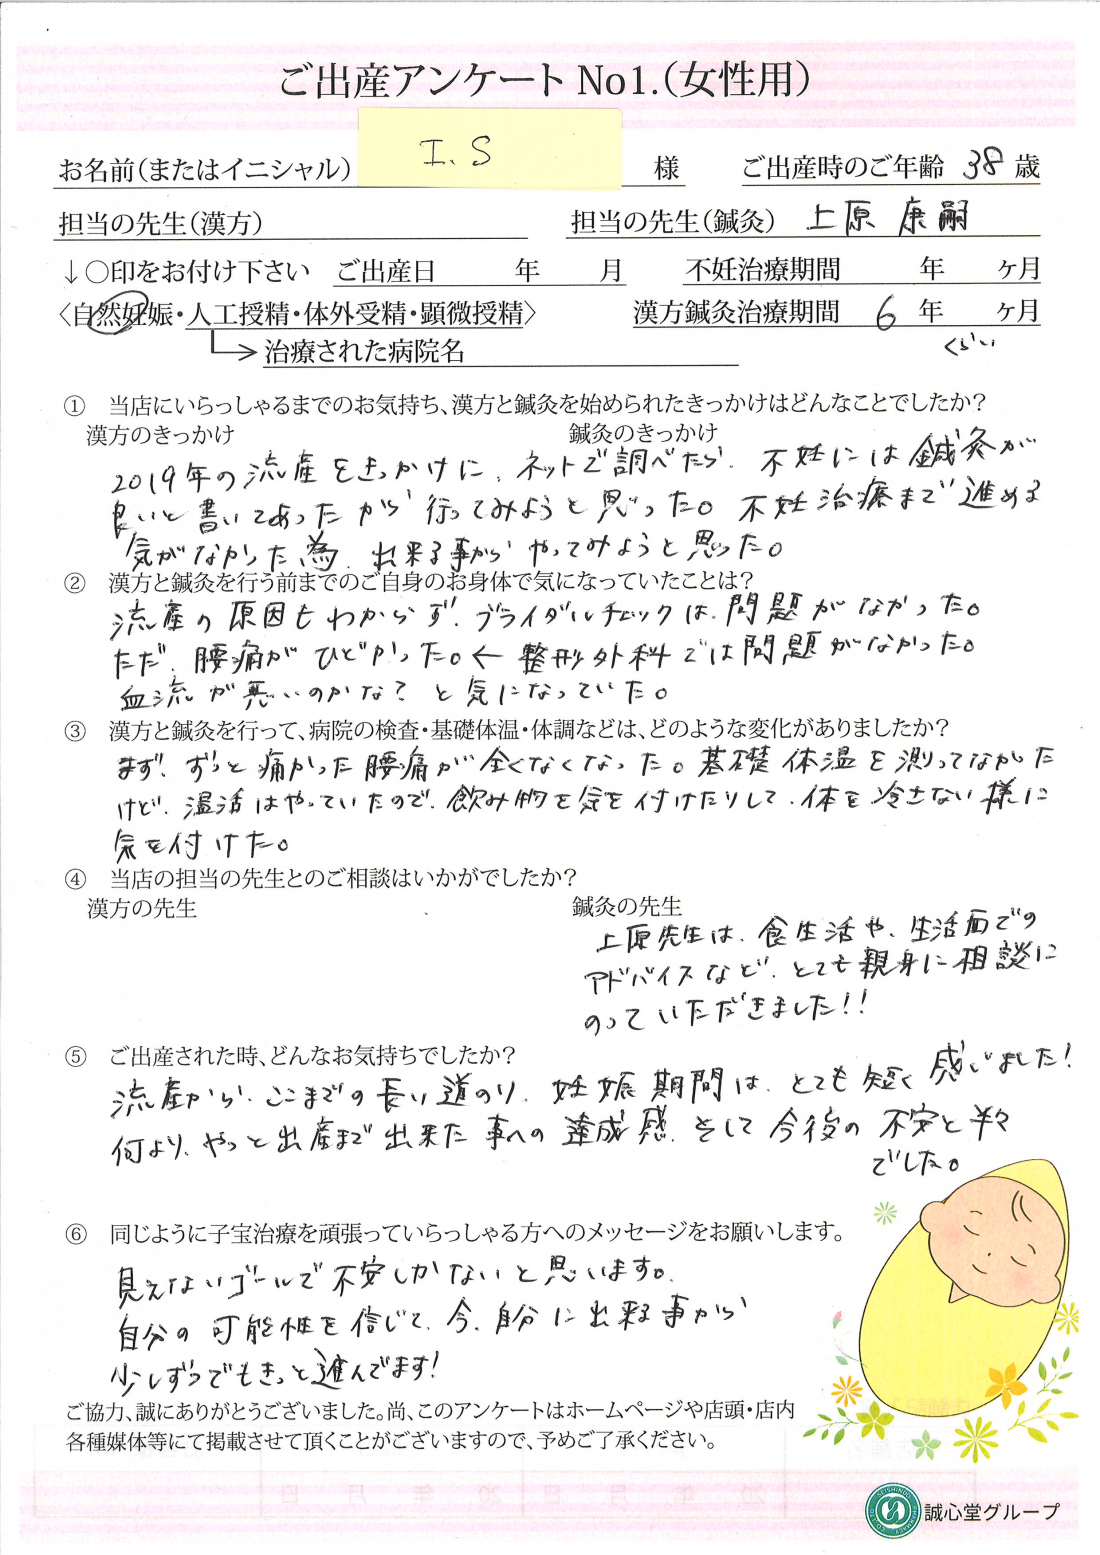 ご出産アンケート No1.(女性用)
お名前(またはイニシャル) I.S 様 ご出産時のご年齢 38 歳
担当の先生(漢方) 担当の先生(鍼灸) 上原 康嗣
↓○印をお付け下さい ご出産日 年 月 不妊治療期間 年 ヶ月
〈自然妊娠・人工授精・体外受精・顕微授精〉 漢方鍼灸治療期間 6 年 ヶ月
くらい
治療された病院名
① 当店にいらっしゃるまでのお気持ち、漢方と鍼灸を始められたきっかけはどんなことでしたか?
漢方のきっかけ 鍼灸のきっかけ
2019年の流産をきっかけに、ネットで調べたら、不妊には鍼灸が
良いと書いてあったから行ってみようと思った。不妊治療まで進める
気がなかった為、出来る事からやってみようと思った。
② 漢方と鍼灸を行う前までのご自身のお身体で気になっていたことは?
流産の原因もわからず、ブライダルチェックは、問題がなかった。
ただ、腰痛がひどかった。← 整形外科では問題がなかった。
血流が悪いのかな?と気になっていた。
③ 漢方と鍼灸を行って、病院の検査・基礎体温・体調などは、どのような変化がありましたか?
まず、ずっと痛かった腰痛が全くなくなった。基礎体温を測ってなかった
けど、温活はやっていたので、飲み物を気を付けたりして、体を冷さない様に
気を付けた。
④ 当店の担当の先生とのご相談はいかがでしたか?
漢方の先生 鍼灸の先生
上原先生は、食生活や、生活面での
アドバイスなど、とても親身に相談に
のっていただきました!!
⑤ ご出産された時、どんなお気持ちでしたか?
流産から、ここまでの長い道のり、妊娠期間は、とても短く感じました!
何より、やっと出産まで出来た事への達成感、そして今後の不安と半々
でした。
⑥ 同じように子宝治療を頑張っていらっしゃる方へのメッセージをお願いします。
見えないゴールで不安しかないと思います。
自分の可能性を信じて、今、自分に出来る事から
少しずつでもきっと進んでます!
ご協力、誠にありがとうございました。尚、このアンケートはホームページや店頭・店内
各種媒体等にて掲載させて頂くことがございますので、予めご了承ください。
誠心堂グループ